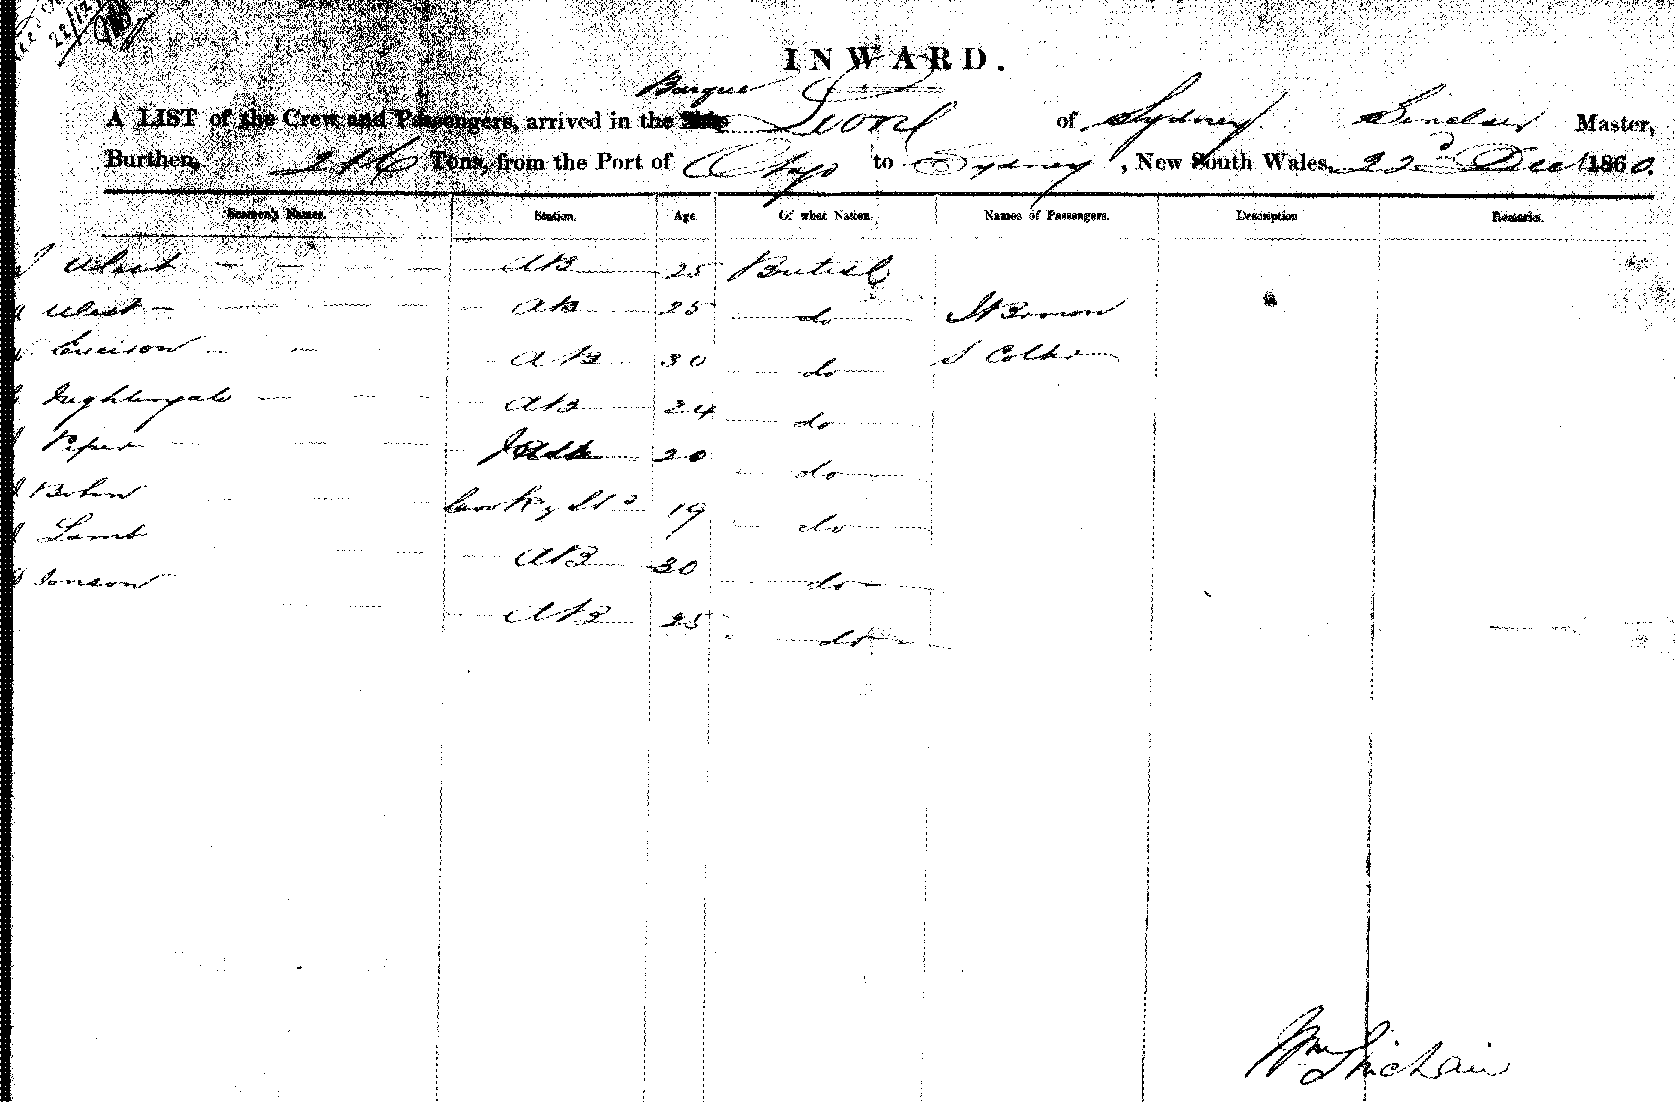 28/12
INWARD.
Barque
A LIST of the Crew and Passengers, arrived in the Ship Lionel of Sydney Sinclair Master,
Burthen, 216 Tons, from the Port of to Sydney, New South Wales, 22d Dec 1860.
Seamen's Names. Station. Age. Of what Nation. Names of Passengers. Description Remarks.
West AB 25 British
West AB 25 do Brown
AB 30 do
Nightingale AB 24 do
Piper 20 do
Cook & Std 19 do
Lamb AB 30 do
Jonson AB 25 do
Wm Sinclair